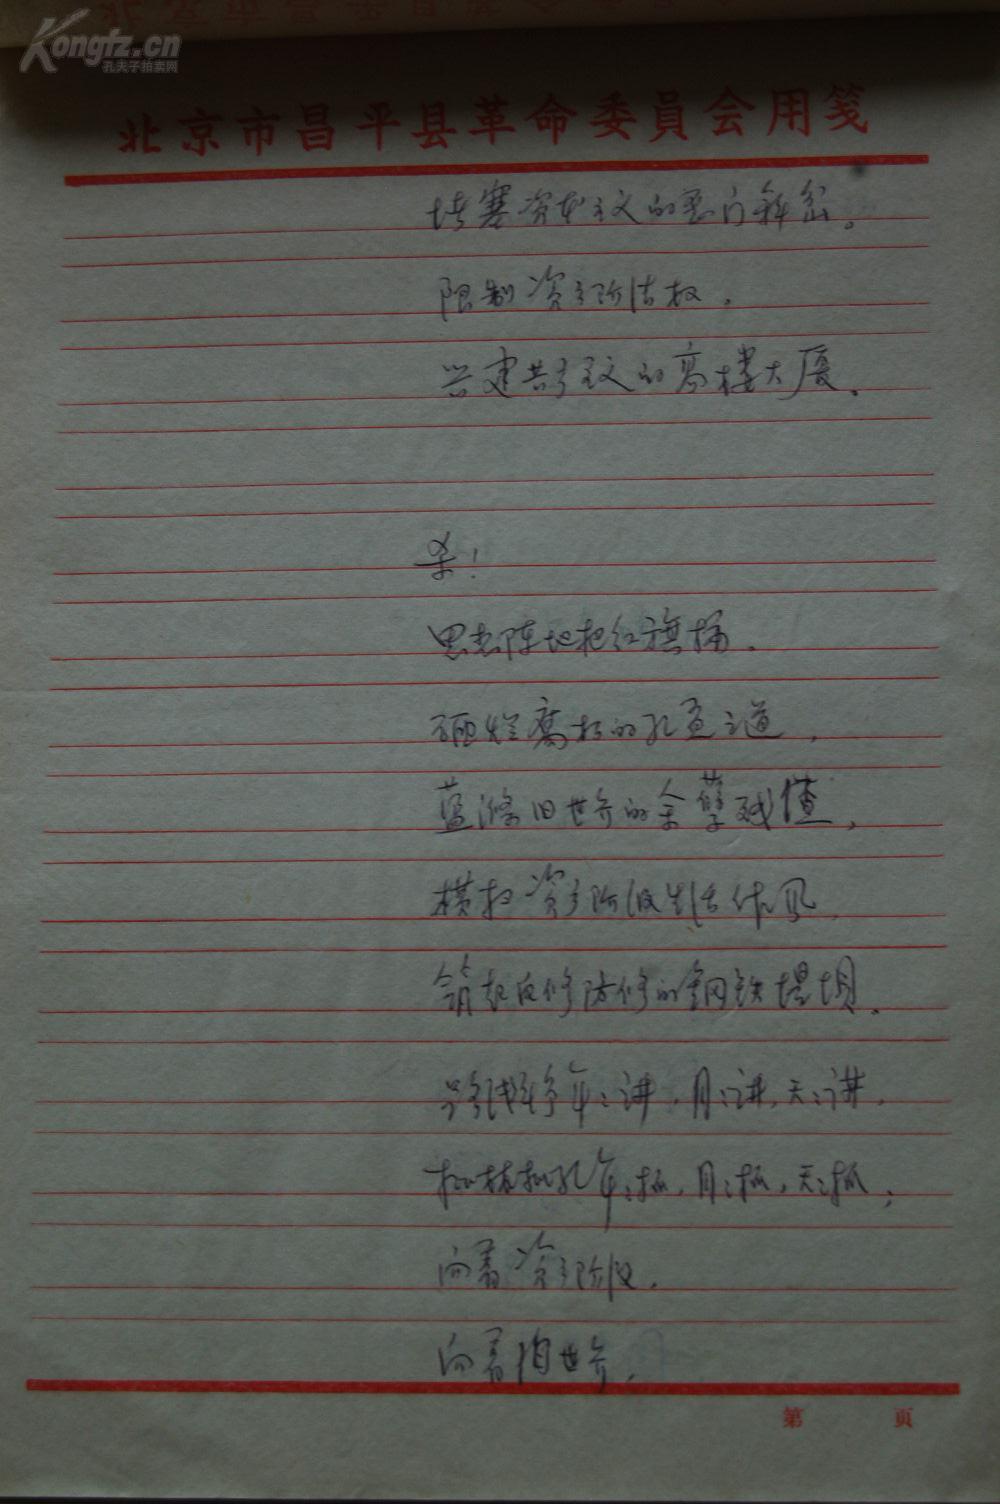 Kongfz.cn
孔夫子拍卖网
北京市昌平县革命委員会用箋
堵塞资本主义的歪门斜岔。
限制资产阶法权，
兴建共产主义的高楼大厦。
杀！
思想阵地把红旗插，
砸烂腐朽的孔孟之道，
荡涤旧世界的余孽残渣，
横扫资产阶级生活作风，
筑起反修防修的钢铁堤坝。
路线斗争年：讲，月：讲，天：讲，
批林批孔年：抓，月：抓，天：抓；
向着资产阶级，
向着旧世界，
第 页